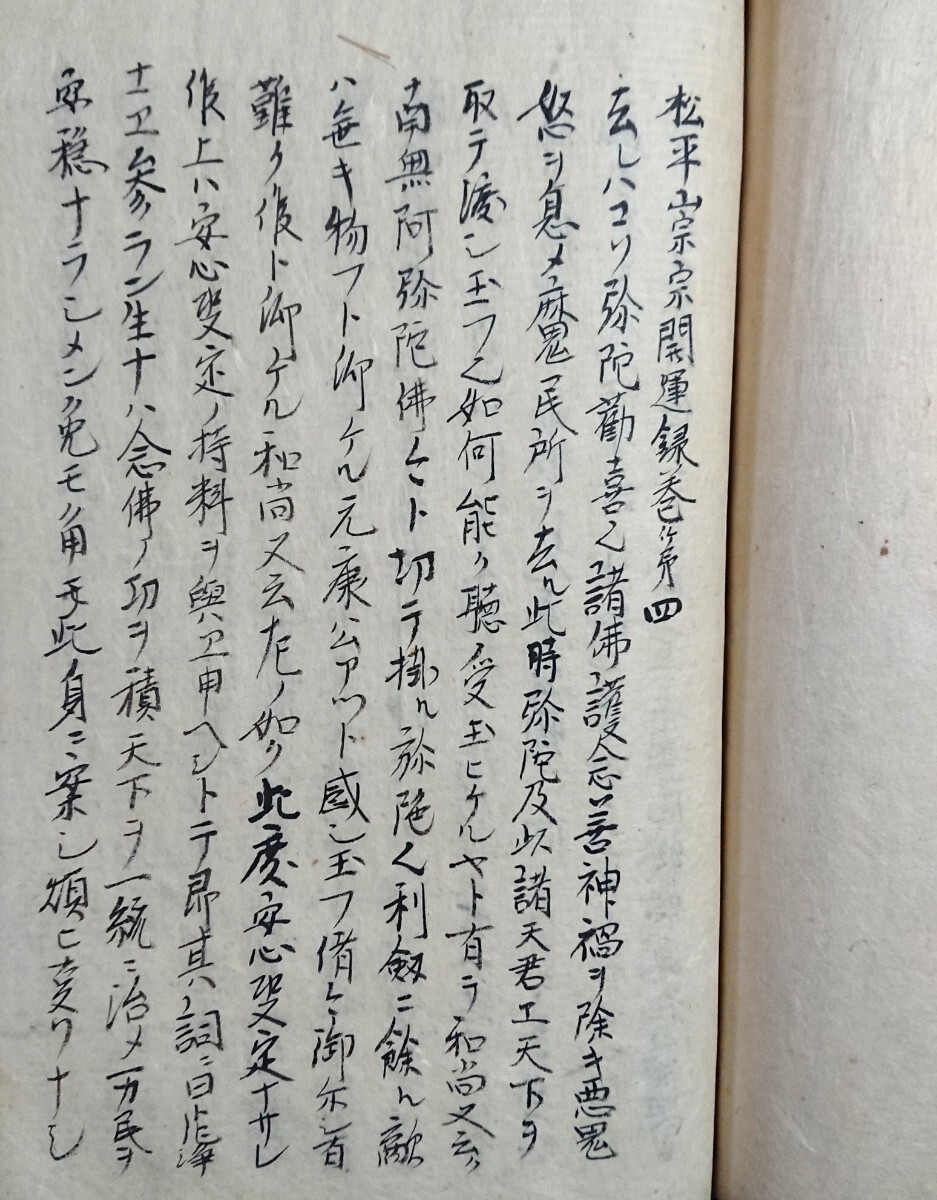 松平山宗宗開運録巻ノ第四
去レハコソ弥陀勸喜シ諸佛ノ護念善神禍ヲ除キ悪鬼
怒ヲ息メ魔鬼民所ヲ去ル此時弥陀及以諸天君エ天下ヲ
取テ渡シ玉フ之如何能ク聽ノ受玉ヒケルヤト有ラ和尚又云ク
南無阿弥陀佛ヽヽト切テ掛ル弥陀ノ利劔ニ餘ル敵
ハ無キ物フト仰ケル元康公アツト感シ玉フ偖ヽ御尓ヒ有
難ク候ト仰ケル和尚又云左ノ如ク此度安心决定ナサレ
候上ハ安心决定ノ持料ヲ與エ申ヘシトテ昂其ノ詞ニ曰ク浄
エ参ラン生ナハ念佛ノ功ヲ積天下ヲ一統ニ治メ万民ヲ
安穏ナラシメン免モ角モ此身ニ案シ煩ヒ更リナシ